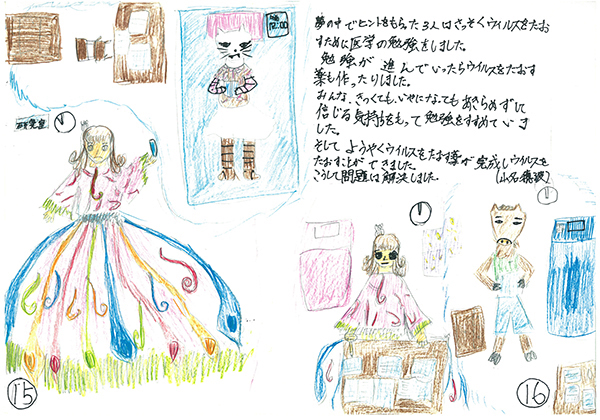 夢の中でヒントをもらった3人はさっそくウイルスをたお
すために医学の勉強をしました。
勉強が進んでいったらウイルスをたおす
薬も作ったりしました。
みんな、きつくてもいやになってもあきらめずに
信じる気持ちをもって勉強をすすめていきま
した。
そしてようやくウイルスをたおす薬が完成しウイルスを
たおすことができました。
こうして問題は解決しました。
12:00
15
16